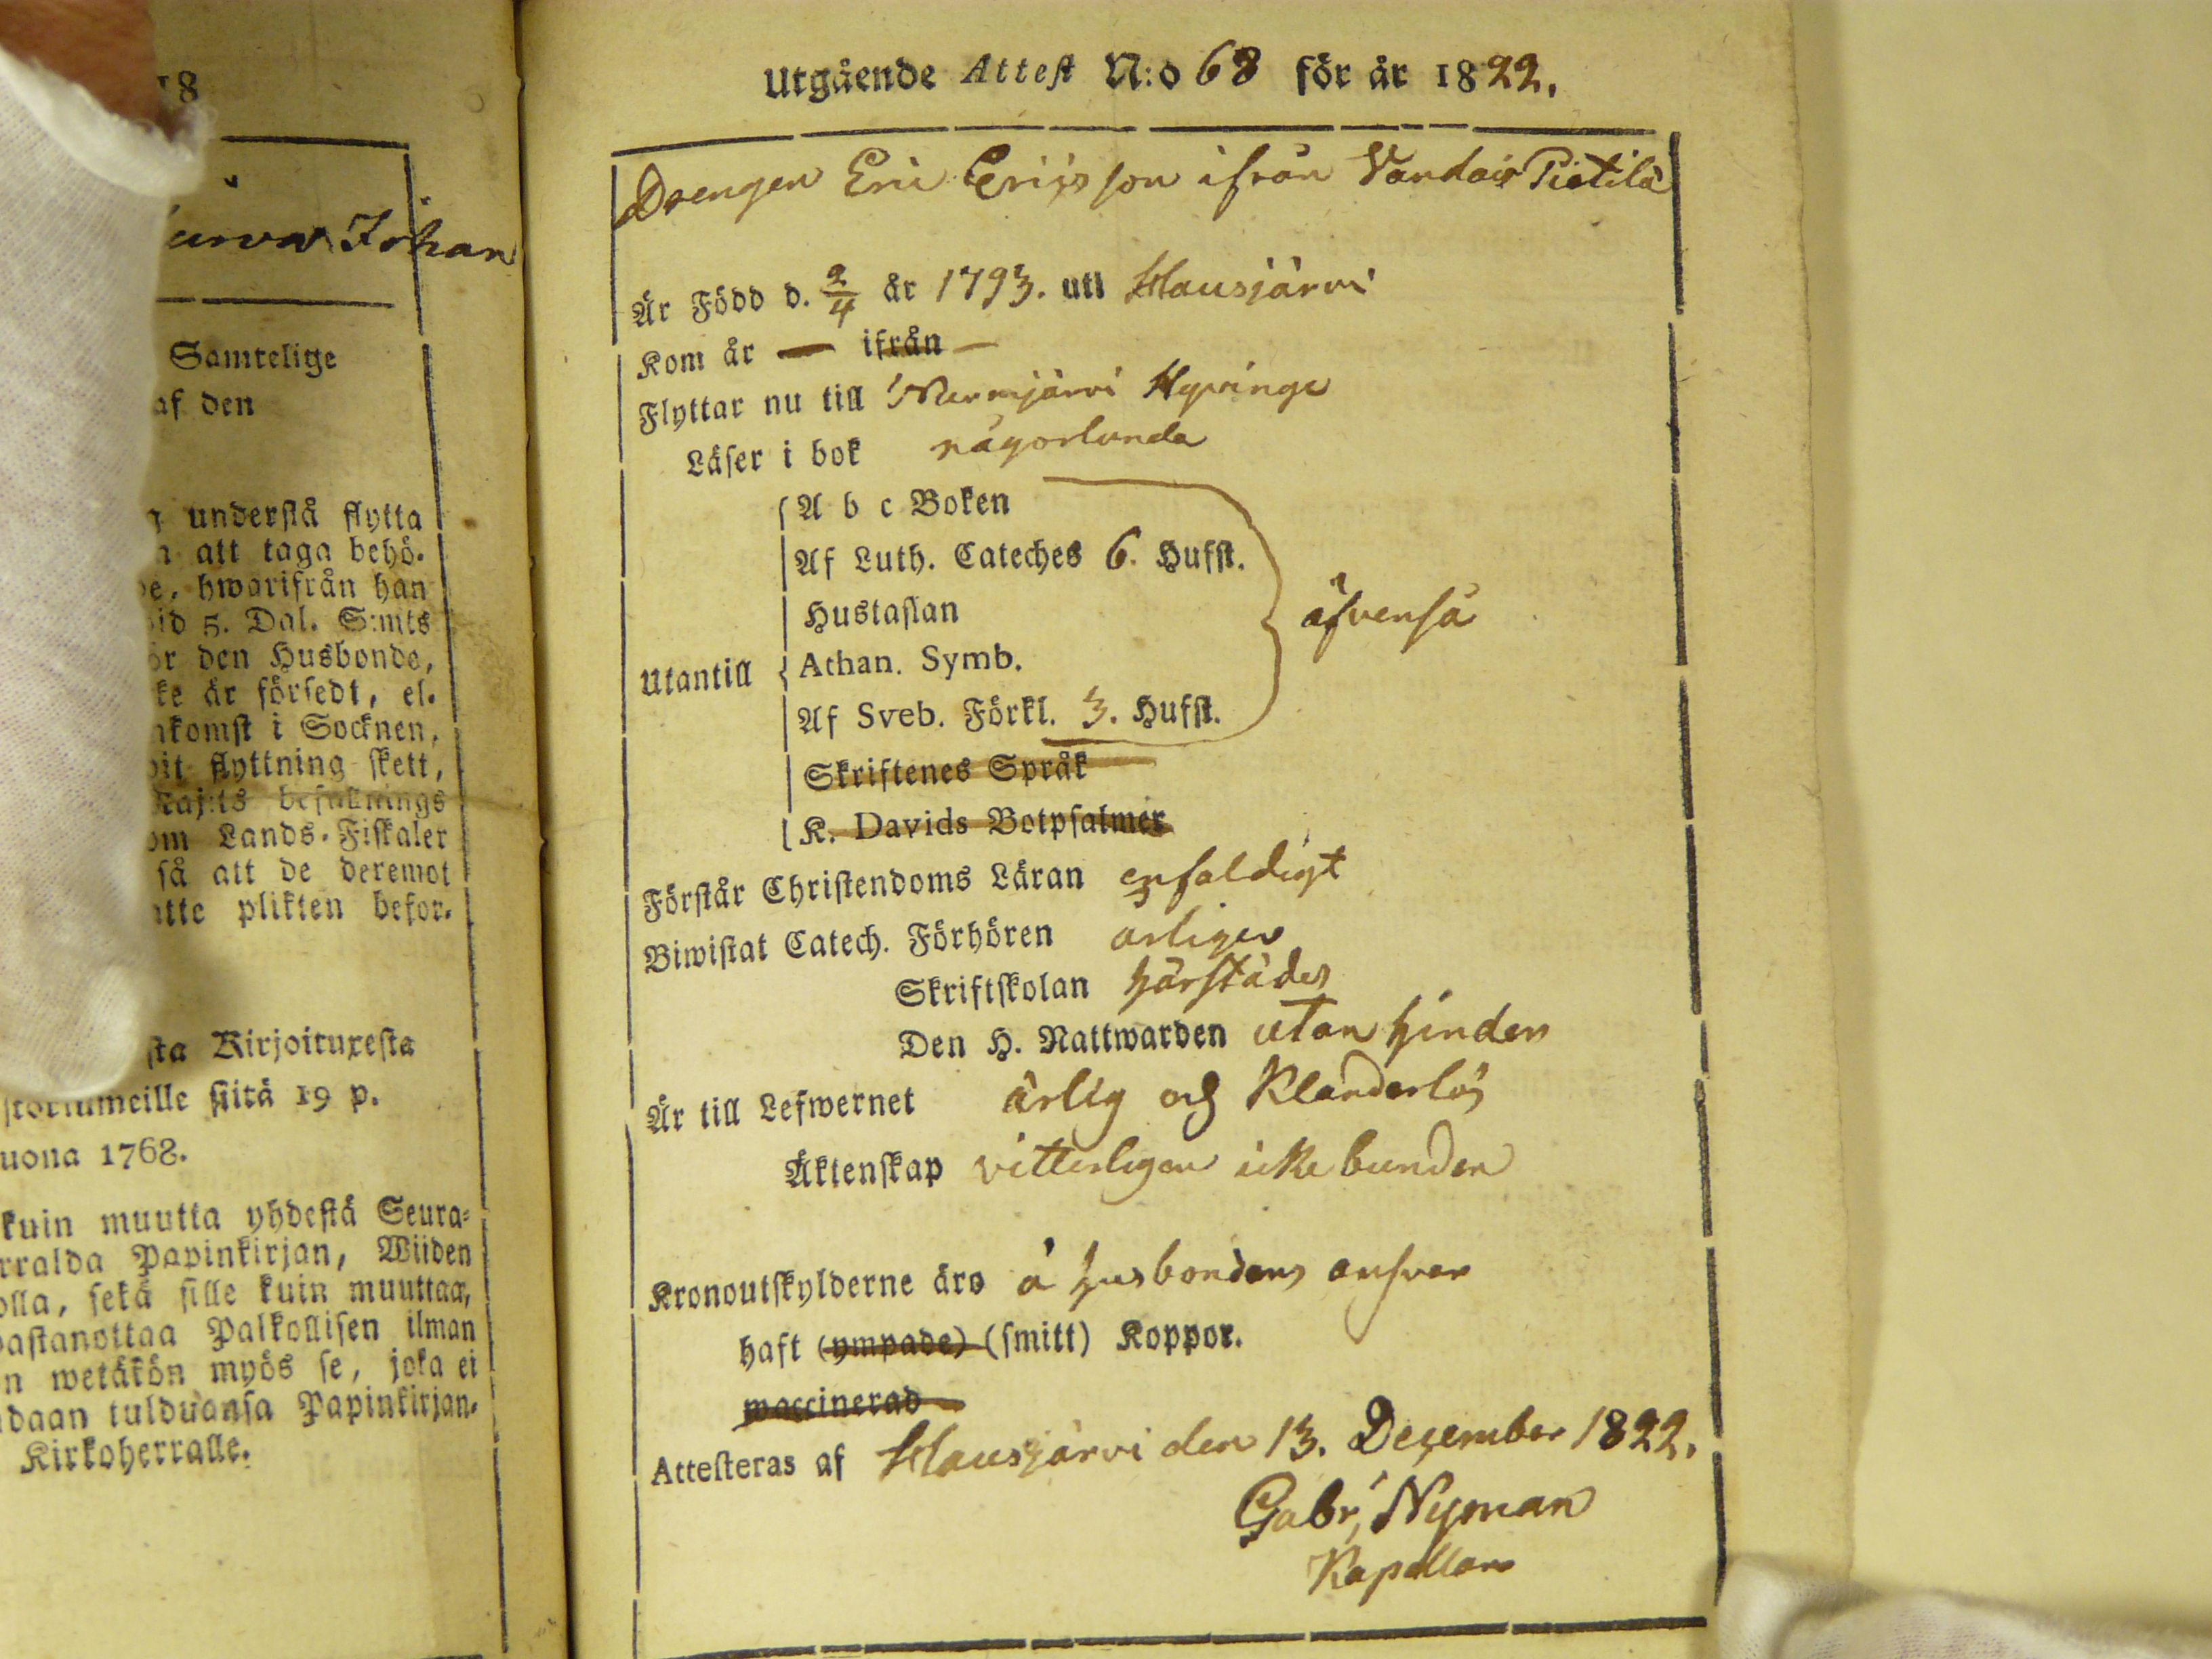 18
Johan
Samtelige
af den
understå flytta
att taga behö-
hwarifrån han
5. Dal. S:mts
den Husbonde,
är försedt, el-
komst i Socknen,
flyttning skett,
befallnings
Lands-Fiskaler
så att de deremot
plikten befor-
Kirjoituxesta
siitä 19 p.
1768.
kuin muutta yhdestä Seura-
Papinkirjan, Wiiden
sekä sille kuin muuttaa,
Palkollisen ilman
wetäkön myös se, joka ei
tulduansa Papinkirjan-
Kirkoherralle.
Utgående Attest N:o 68 för år 1822.
Drengen Eric Ericsson ifrån Vandais Pietilä
Är Född d. 2/4 år 1793. uti Hausjärvi
Kom år — ifrån —
Flyttar nu till Nurmjärvi Hyvinge
Läser i bok någorlunda
A b c Boken
Af Luth. Cateches 6. Hufst.
Hustaflan
äfvenså
Utantill Athan. Symb.
Af Sveb. Förkl. 3. Hufst.
Skriftenes Språk
K. Davids Botpsalmer
Förstår Christendoms Läran enfaldigt
Biwistat Catech. Förhören årligen
Skriftskolan härstädes
Den H. Nattwarden utan hinder
Är till Lefwernet ärlig och Klanderlös
Äktenskap vitterligen icke bunden
Kronoutskylderne äro å husbondens ansvar
haft (ympade) (smitt) Koppor.
waccinerad
Attesteras af Hausjärvi den 13. December 1822.
Gabr, Nyman
Kapellan